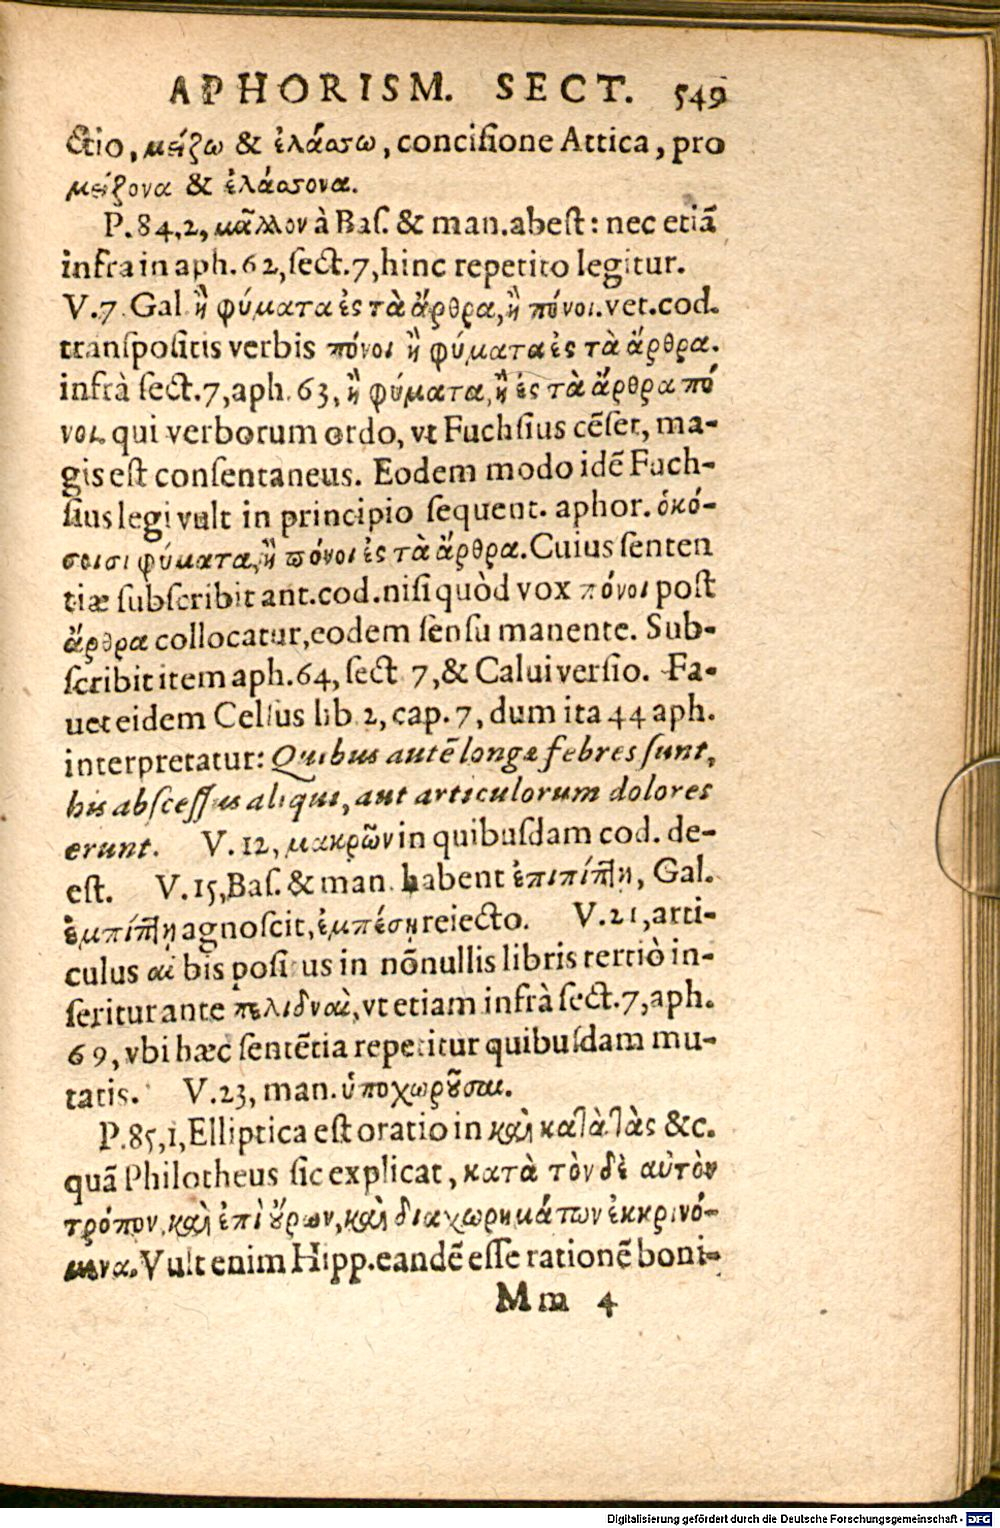 APHORISM. SECT. 549
ctio, μείζω & ἐλάσσω, concisione Attica, pro
μείζονα & ἐλάσσονα.
P. 84, 2, μᾶλλον à Bas. & man. abest: nec etiā
infra in aph. 62, sect. 7, hinc repetito legitur.
V. 7 Gal ἢ φύματα ἐς τὰ ἄρθρα, ἢ πόνοι. vet. cod.
transpositis verbis πόνοι ἢ φύματα ἐς τὰ ἄρθρα.
infrà sect. 7, aph. 63, ἢ φύματα, ἢ ἐς τὰ ἄρθρα πό
νοι. qui verborum ordo, vt Fuchsius cēset, ma-
gis est consentaneus. Eodem modo idē Fuch-
sius legi vult in principio sequent. aphor. ὁκό-
σοισι φύματα, ἢ πόνοι ἐς τὰ ἄρθρα. Cuius senten
tiæ subscribit ant. cod. nisi quòd vox πόνοι post
ἄρθρα collocatur, eodem sensu manente. Sub-
scribit item aph. 64, sect 7, & Calui versio. Fa-
uet eidem Celsus lib 2, cap. 7, dum ita 44 aph.
interpretatur: Quibus autē longæ febres sunt,
his abscessus aliqui, aut articulorum dolores
erunt. V. 12, μακρῶν in quibusdam cod. de-
est. V. 15, Bas. & man. habent ἐπιπίπτῃ, Gal.
ἐμπίπτῃ agnoscit, ἐμπέσῃ reiecto. V. 21, arti-
culus αἱ bis positus in nōnullis libris tertiò in-
seritur ante πελιδναὶ, vt etiam infrà sect. 7, aph.
69, vbi hæc sentētia repetitur quibusdam mu-
tatis. V. 23, man. ὑποχωροῦσαι.
P. 85, 1, Elliptica est oratio in καὶ κατὰ τὰς &c.
quā Philotheus sic explicat, κατὰ τὸν δὲ αὐτὸν
τρόπον, καὶ ἐπὶ οὔρων, καὶ διαχωρημάτων ἐκκρινό-
μενα. Vult enim Hipp. eandē esse rationē boni-
Mm 4
Digitalisierung gefördert durch die Deutsche Forschungsgemeinschaft - DFG